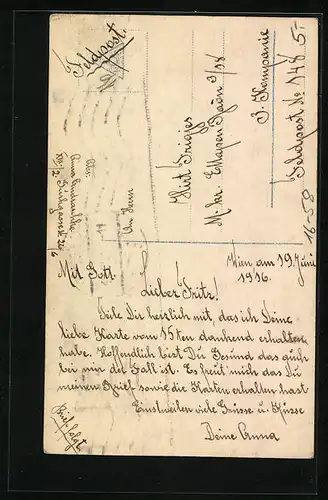 Feldpost
Abs:
Anna
XIII/2.
An Herrn
M. kr. Etappen
3. Kompanie
Feldpost No 148
5-
16-58
Mit Gott.
Wien am 19. Juni
1916.
Lieber Fritz!
Teile Dir herzlich mit, das ich Deine
liebe Karte vom 15ten dankend erhalten
habe. Hoffendlich bist Du Gesund das auch
bei mir der Fall ist. Es freut mich das Du
meinen Brief sowie die Karten erhalten hast
Einstweilen viele Grüsse u. Küsse
Deine Anna
Brief folgt.